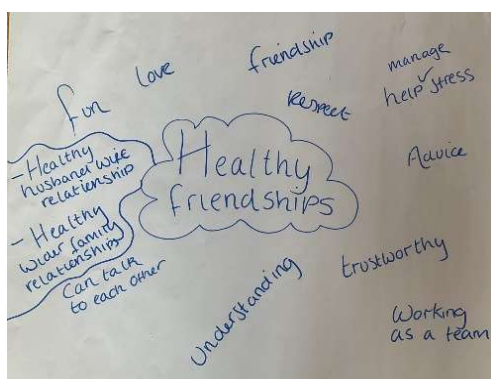 fun
love
friendship
Respect
manage
help ✓ stress
Advice
Healthy
friendships
- Healthy
husband wife
relationship
- Healthy
wider family
relationships
Can talk
to each other
Understanding
trustworthy
Working
as a team